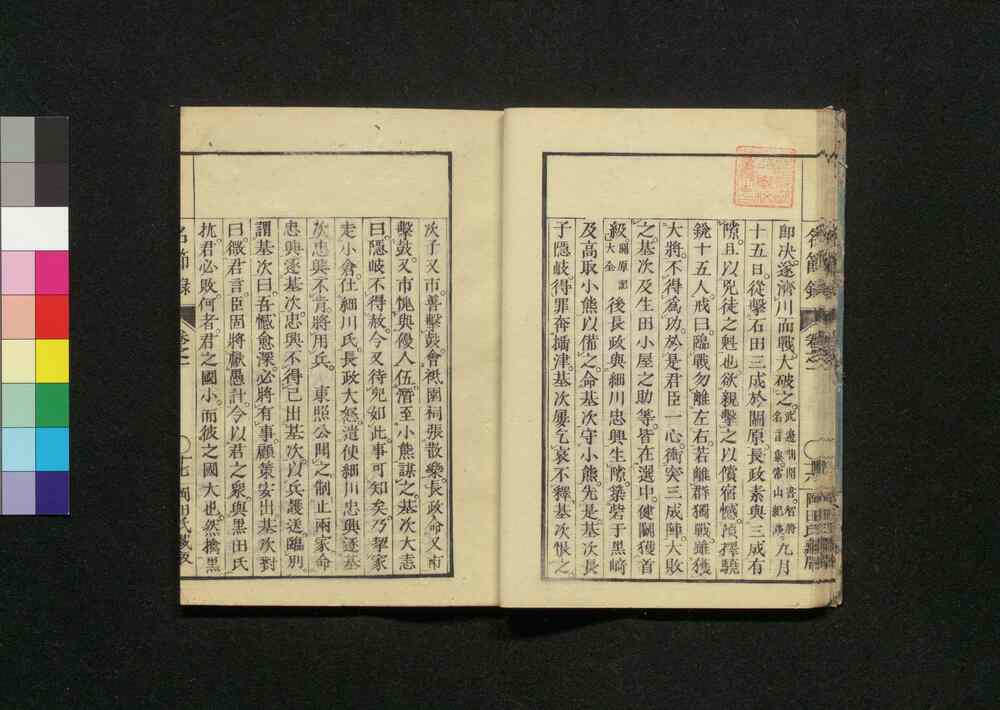 即决。遂濟川而戰。大破之。武邊咄聞書。智勝名言。象常山紀談九月
十五日。從擊石田三成於關原。長政素與三成有
隙。且以兇徒之魁也。欲親擊之以償宿憾。預擇驍
銳十五人。戒曰。臨戰勿離左右。若離群獨戰。雖獲
大將。不得為功。於是君臣一心。衝突三成陣。大敗
之。基次及生田小屋之助等。皆在選中。健鬪獲首
級。關原記大全後長政與細川忠興生隙。築砦于黑崎
及高取小熊以備之。命基次守小熊。先是基次長
子隱岐得罪奔攝津。基次屢乞哀不釋。基次恨之。
次子又市。善擊鼓。會祇園祠張散樂。長政命又市
擊鼓。又市愧與優人伍。潛至小熊謀之。基次大恚
曰。隱岐不得赦。今又待兒如此。事可知矣。乃挈家
走小倉。仕細川氏。長政大怒。遣使細川忠興逐基
次。忠興不肯。將用兵。東照公聞之。制止兩家。命
忠興逐基次。忠興不得已出基次。以兵護送。臨別。
謂基次曰。吾憾愈深。必將有事。顧策安出。基次對
曰。微君言。臣固將獻愚計。今以君之衆。與黑田氏
抗。君必敗。何者。君之國小。而彼之國大也。然擒黑
名節錄 卷之一 ○十七 岡田氏藏版